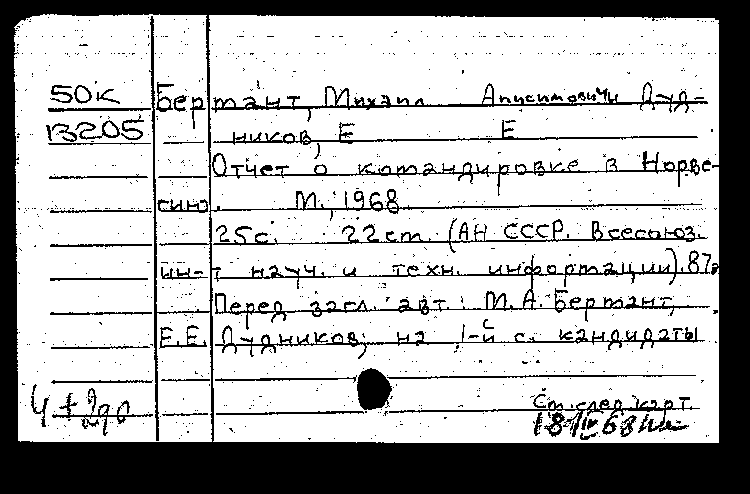 50к Бертант, Михаил Анисимович и Дуд-
13205 ников, Е Е
Отчет о командировке в Норве-
гию. М., 1968
25с. 22см. (АН СССР. Всесоюз.
ин-т науч. и техн. информации). 87а
Перед загл. авт.: М.А. Бертант,
Е.Е. Дудников; на 1-й с. кандидаты
См. след. карт.